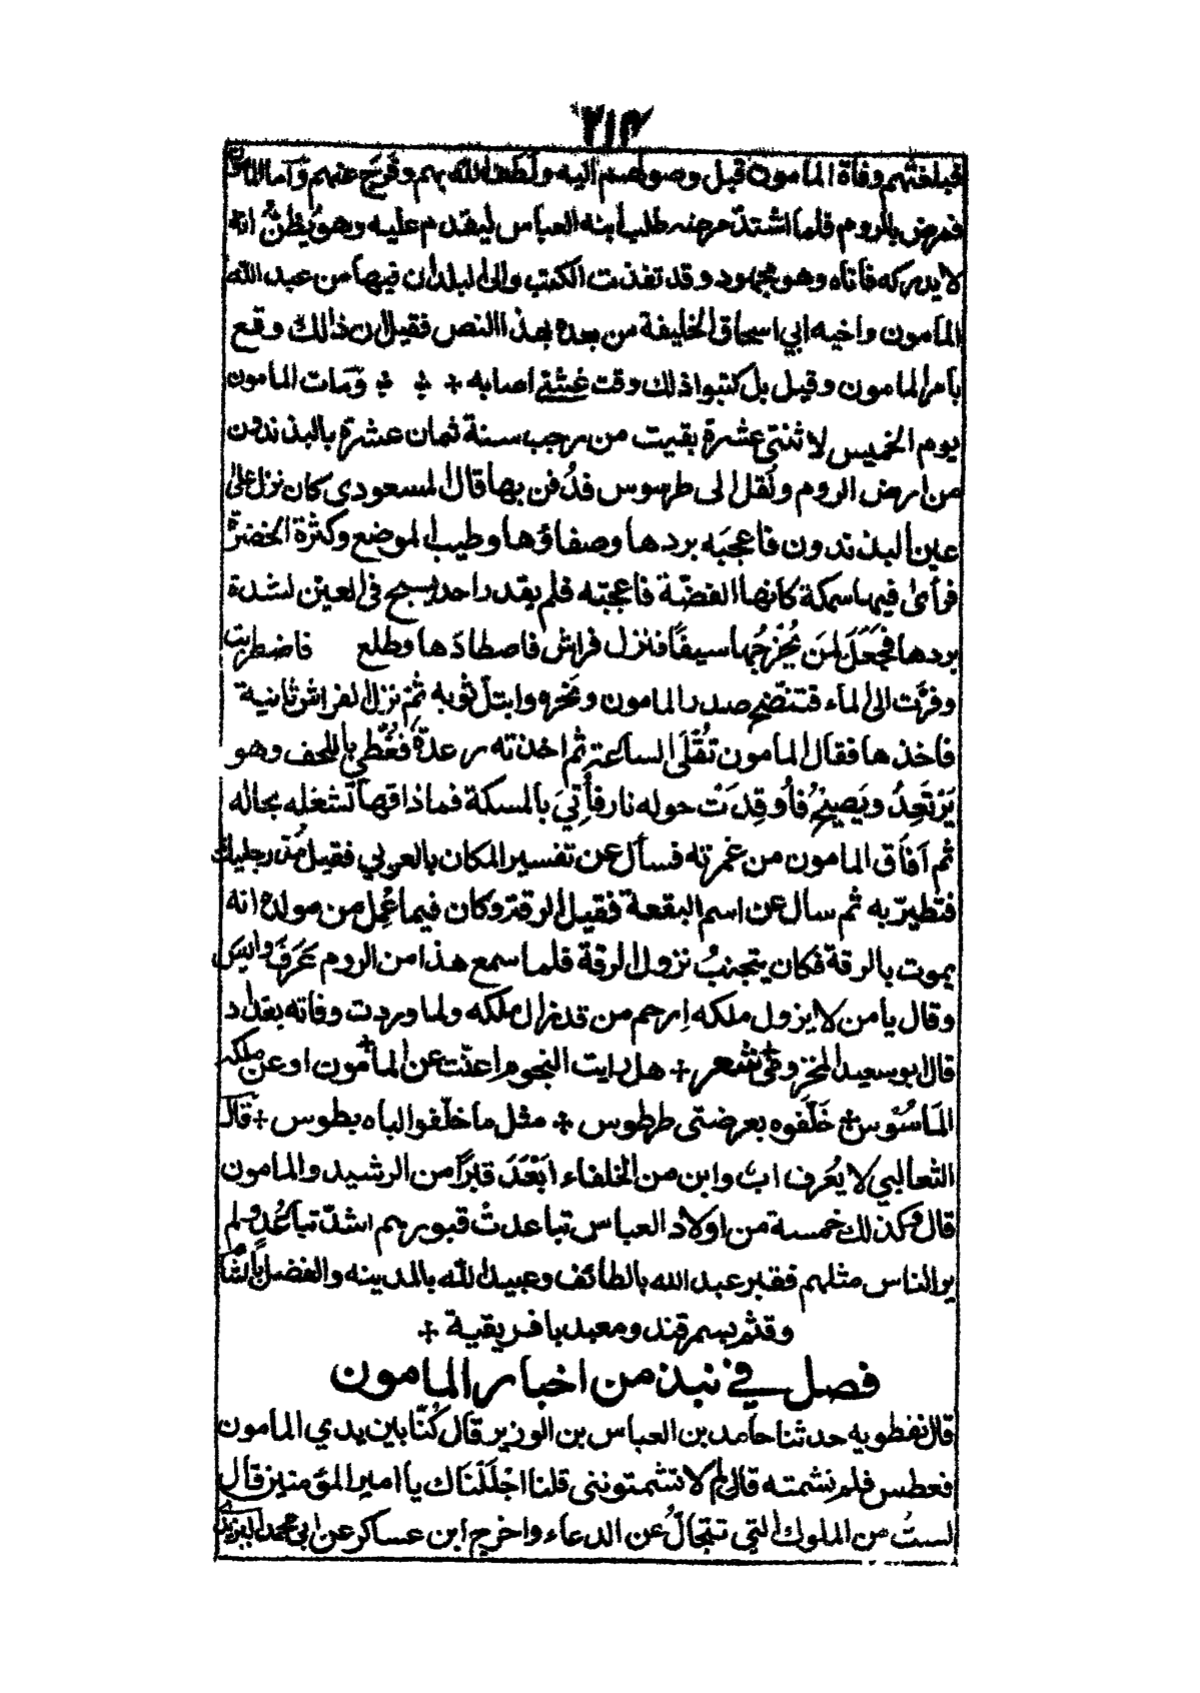 ٢١٣
فبلغتهم وفاة المامون قبل وصولهم اليه ولطف الله بهم وفرج عنهم وَاما المامون
فمرض بالروم فلما اشتدّ مرضه طلب ابنه العباس ليقدم عليه وهو يظنُّ انه
لا يدركه فاتاه وهو مجهود وقد نفذت الكتب والى البلدان فيها من عبد الله
المامون واخيه ابي اسحاق الخليفة من بعده بهذا النص فقيل ان ذالك وقع
بامر المامون وقيل بل كتبوا ذلك وقت غشيٍ اصابه ÷ ÷ ÷ وَمَات المامون
يوم الخميس لاثنتى عشرة بقيت من رجب سنة ثمان عشرة بالبذندون
من ارض الروم ونُقل الى طرسوس فدُفن بها قال المسعودي كان نزل على
عين البذندون فاعجبَه بردها وصفاؤها وطيب الموضع وكثرة الخضرة
فرأى فيها سمكة كانها الفضّة فاعجبته فلم يقدر احد يسبح فى العين لشدة
بردها فجَعَلَ لمَن يُخرجُها سيفًا فنزل فراش فاصطادَها وطلع فاضطربت
وفرّت الى الماء فتنضّح صدر المامون ونحره وابتلّ ثوبه ثم نزل الفراش ثانية
فاخذها فقال المامون تُقْلَى الساعة ثم اخذته رعدة فغُطي باللحف وهو
يَرْتَعِدُ ويَصيحُ فأُوقِدَتْ حوله نار فأُتِيَ بالسمكة فما ذاقها لشغله بحاله
ثم اَفاق المامون من غمرته فسأل عن تفسير المكان بالعربي فقيل مُدّ رجليك
فتطيرّ به ثم سال عن اسم البقعة فقيل الرقة وكان فيما عُمِل من مولده انه
يموت بالرقة فكان يتجنبُ نزول الرقة فلما سمع هذا من الروم عَرَفَ وايِسَ
وقال يا من لا يزول ملكه اِرحم من قد زال ملكه ولما وردت وفاته بغداد
قال ابو سعيد المخزومى شعر ÷ هل رايت النجوم اغنت عن المامون ÷ او عن ملكه
المَاسُوس ÷ خَلّفوه بعرصتى طرطوس ÷ مثل ما خلّفوا اباه بطوس ÷ قال
الثعالبي لا يُعرف اب وابن من الخلفاء اَبْعَدَ قبرًا من الرشيد والمامون
قال وكذلك خمسة من اولاد العباس تباعدتْ قبورهم اشدّ تباعُد ولم
ير الناس مثلهم فقبر عبد الله بالطائف وعبيد الله بالمدينه والفضل بالشام
وقثم بسمرقند ومعبد بافريقية ÷
فصل في نبذ من اخبار المامون
قال نفطويه حدثنا حامد بن العباس بن الوزير قال كُنّا بين يدي المامون
فعطس فلم نشمته قال لِم لا تشمتوننى قلنا اجْلَلْنَاك يا امير المؤمنين قال
لستُ من الملوك التي تتجالُّ عن الدعاء واخرج ابن عساكر عن ابي محمد اليزيدي